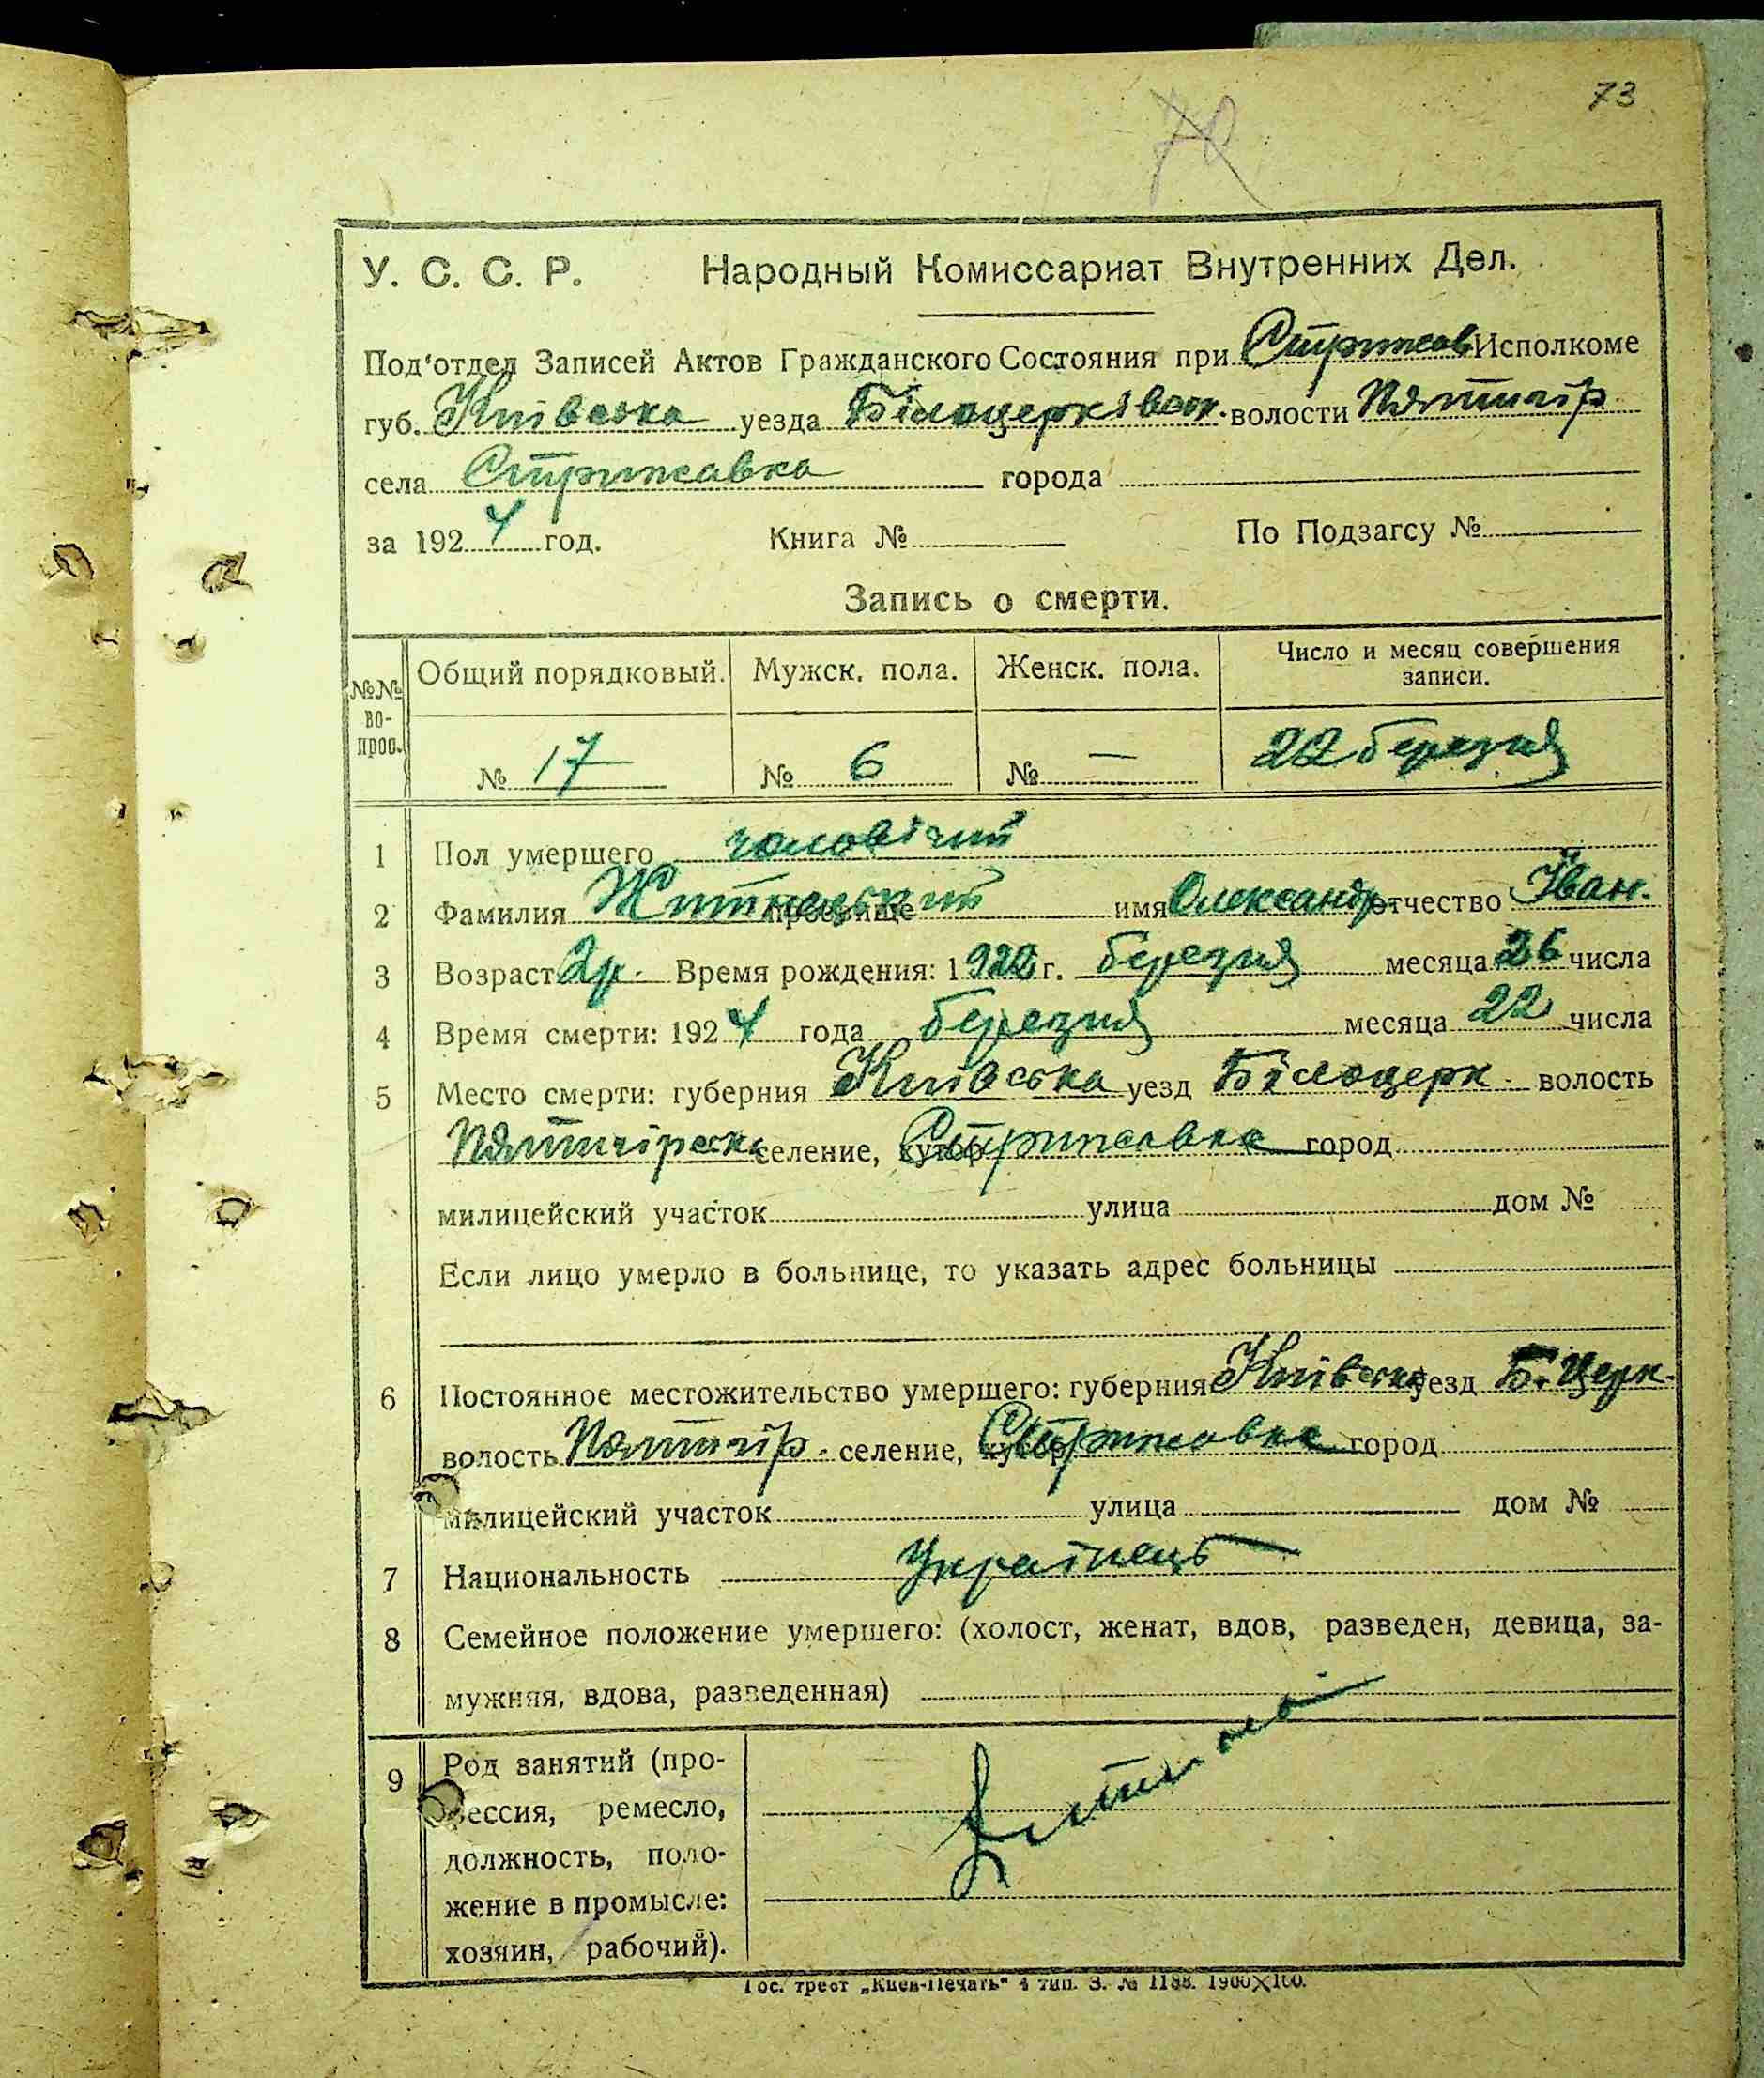 73
У. С. С. Р. Народный Комиссариат Внутренних Дел.
Под'отдел Записей Актов Гражданского Состояния при Стрижав Исполкоме
губ. Київська уезда Білоцерківськ. волости Пятигір
села Стрижавка города
за 1924 год. Книга № По Подзагсу №
Запись о смерти.
№№ во-прос. Общий порядковый. Мужск. пола. Женск. пола. Число и месяц совершения записи.
№ 17 № 6 № — 22 березня
1 Пол умершего чоловічий
2 Фамилия Житнецький прозвище имя Олександр. отчество Іван.
3 Возраст 2 р. Время рождения: 1922 г. березня месяца 26 числа
4 Время смерти: 1924 года березня месяца 22 числа
5 Место смерти: губерния Київська уезд Білоцерк. волость
Пятигірськ селение, хутор Стрижавка город
милицейский участок улица дом №
Если лицо умерло в больнице, то указать адрес больницы
6 Постоянное местожительство умершего: губерния Київська уезд Б. Церк.
волость Пятигір. селение, хутор Стрижавка город
милицейский участок улица дом №
7 Национальность Українець
8 Семейное положение умершего: (холост, женат, вдов, разведен, девица, за-
мужняя, вдова, разведенная)
9 Род занятий (про-
фессия, ремесло,
должность, поло-
жение в промысле:
хозяин, рабочий).
Гос. трест „Киев-Печать" 4 тип. З. № 1188. 1900×100.